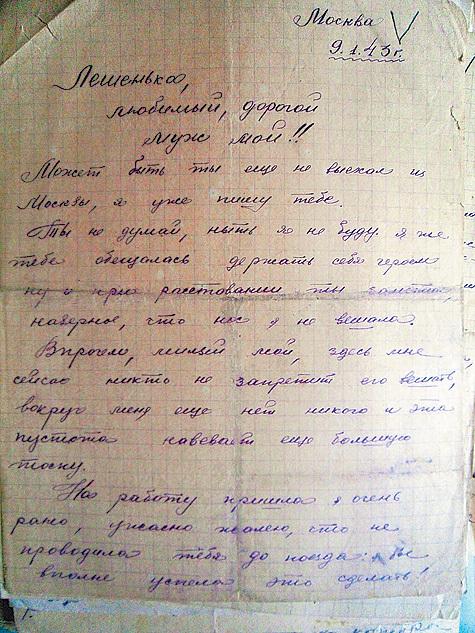 Москва
9.1.43 г.
Лешенька,
любимый, дорогой
муж мой!!
Может быть ты еще не выехал из
Москвы, а я уже пишу тебе.
Ты не думай, ныть я не буду. я же
тебе обещалась держать себя героем
ну и при расставании ты заметил,
наверное, что нос я не вешала.
Впрочем, милый мой, здесь мне
сейчас никто не запретит его вешать,
вокруг меня еще нет никого и эта
пустота навевает еще большую
тоску.
На работу пришла я очень
рано, ужасно жалею, что не
проводила тебя до поезда: я бы
вполне успела это сделать!